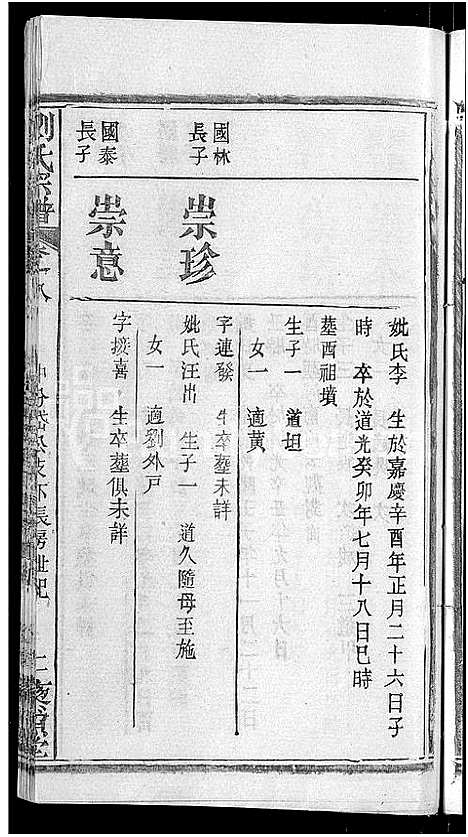 妣氏李　生於嘉慶辛酉年正月二十六日子
時　卒於道光癸卯年七月十八日巳時
塟酉祖墳
生子一　道坦
女一　適黄
國林
長子
崇珍
字連發　生卒塟未詳
妣氏汪出　生子一　道久隨母至施
女一　適劉外戸
國泰
長子
崇意
字接喜　生卒塟俱未詳
劉氏宗譜
長房世紀